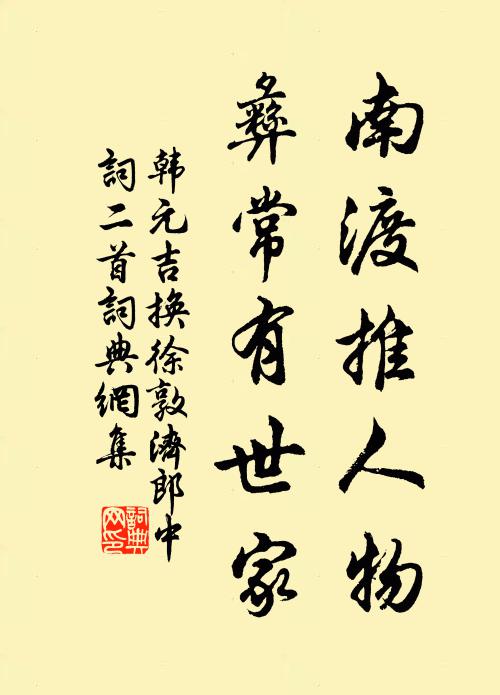 南渡推人物
彝常有世家
韩元吉换徐敦濟郎中
詞二首詞典網集
詞典网印